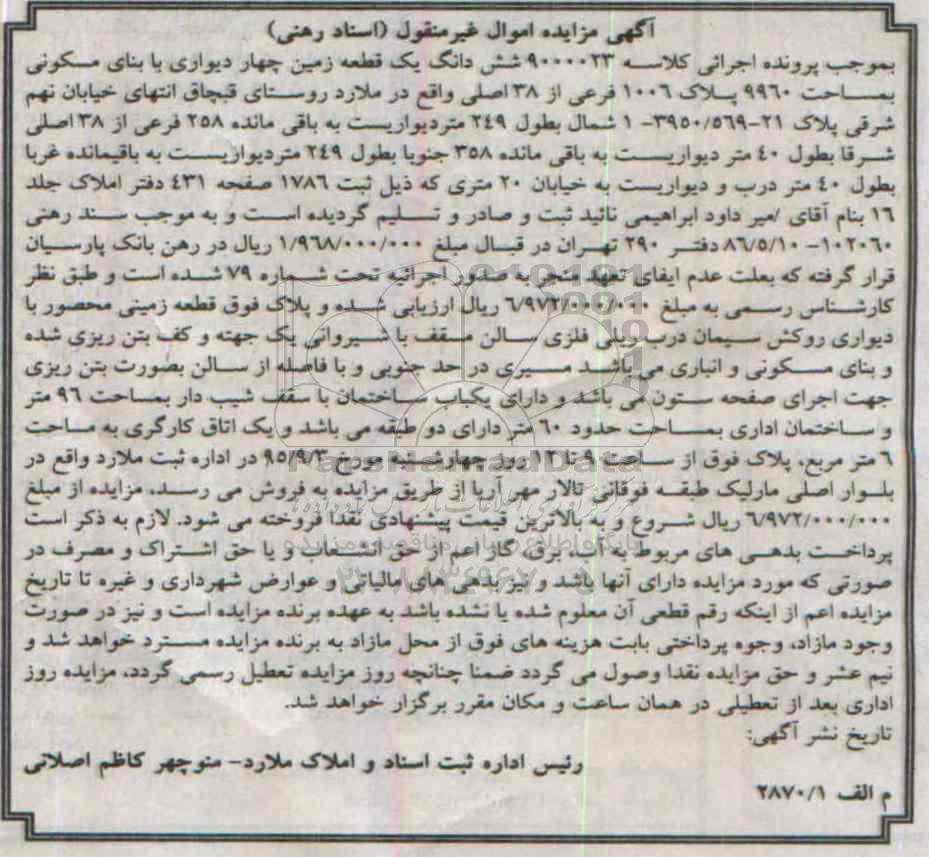 آگهی مزایده اموال غیرمنقول (اسناد رهنی)
بموجب پرونده اجرائی کلاسه ۹۰۰۰۰۲۳ شش دانگ یک قطعه زمین چهار دیواری با بنای مسکونی
بمساحت ۹۹۶۰ پلاک ۱۰۰۶ فرعی از ۳۸ اصلی واقع در ملارد روستای قبچاق انتهای خیابان نهم
شرقی پلاک ۲۱-۳۹۵۰/۵۶۹- ۱ شمال بطول ۲۴۹ متردیواریست به باقی مانده ۲۵۸ فرعی از ۳۸ اصلی
شرقا بطول ۴۰ متر دیواریست به باقی مانده ۳۵۸ جنوبا بطول ۲۴۹ متردیواریست به باقیمانده غربا
بطول ۴۰ متر درب و دیواریست به خیابان ۲۰ متری که ذیل ثبت ۱۷۸۶ صفحه ۴۳۱ دفتر املاک جلد
۱۶ بنام آقای /میر داود ابراهیمی تائید ثبت و صادر و تسلیم گردیده است و به موجب سند رهنی
۱۰۲۰۶۰- ۸۶/۵/۱۰ دفتر ۲۹۰ تهران در قبال مبلغ ۱/۹۶۸/۰۰۰/۰۰۰ ریال در رهن بانک پارسیان
قرار گرفته که بعلت عدم ایفای تعهد منجر به صدور اجرائیه تحت شماره ۷۹ شده است و طبق نظر
کارشناس رسمی به مبلغ ۶/۹۷۲/۰۰۰/۰۰۰ ریال ارزیابی شده و پلاک فوق قطعه زمینی محصور با
دیواری روکش سیمان درب ریلی فلزی سالن مسقف با شیروانی یک جهته و کف بتن ریزی شده
و بنای مسکونی و انباری می باشد مسیری در حد جنوبی و با فاصله از سالن بصورت بتن ریزی
جهت اجرای صفحه ستون می باشد و دارای یکباب ساختمان با سقف شیب دار بمساحت ۹۶ متر
و ساختمان اداری بمساحت حدود ۶۰ متر دارای دو طبقه می باشد و یک اتاق کارگری به مساحت
۶ متر مربع، پلاک فوق از ساعت ۹ تا ۱۲ روز چهارشنبه مورخ ۹۵/۹/۳ در اداره ثبت ملارد واقع در
بلوار اصلی مارلیک طبقه فوقانی تالار مهر آریا از طریق مزایده به فروش می رسد، مزایده از مبلغ
۶/۹۷۲/۰۰۰/۰۰۰ ریال شروع و به بالاترین قیمت پیشنهادی نقدا فروخته می شود. لازم به ذکر است
پرداخت بدهی های مربوط به آب، برق، گاز اعم از حق انشعاب و یا حق اشتراک و مصرف در
صورتی که مورد مزایده دارای آنها باشد و نیز بدهی های مالیاتی و عوارض شهرداری و غیره تا تاریخ
مزایده اعم از اینکه رقم قطعی آن معلوم شده یا نشده باشد به عهده برنده مزایده است و نیز در صورت
وجود مازاد، وجوه پرداختی بابت هزینه های فوق از محل مازاد به برنده مزایده مسترد خواهد شد و
نیم عشر و حق مزایده نقدا وصول می گردد ضمنا چنانچه روز مزایده تعطیل رسمی گردد، مزایده روز
اداری بعد از تعطیلی در همان ساعت و مکان مقرر برگزار خواهد شد.
تاریخ نشر آگهی:
رئیس اداره ثبت اسناد و املاک ملارد- منوچهر کاظم اصلانی
م الف ۲۸۷۰/۱